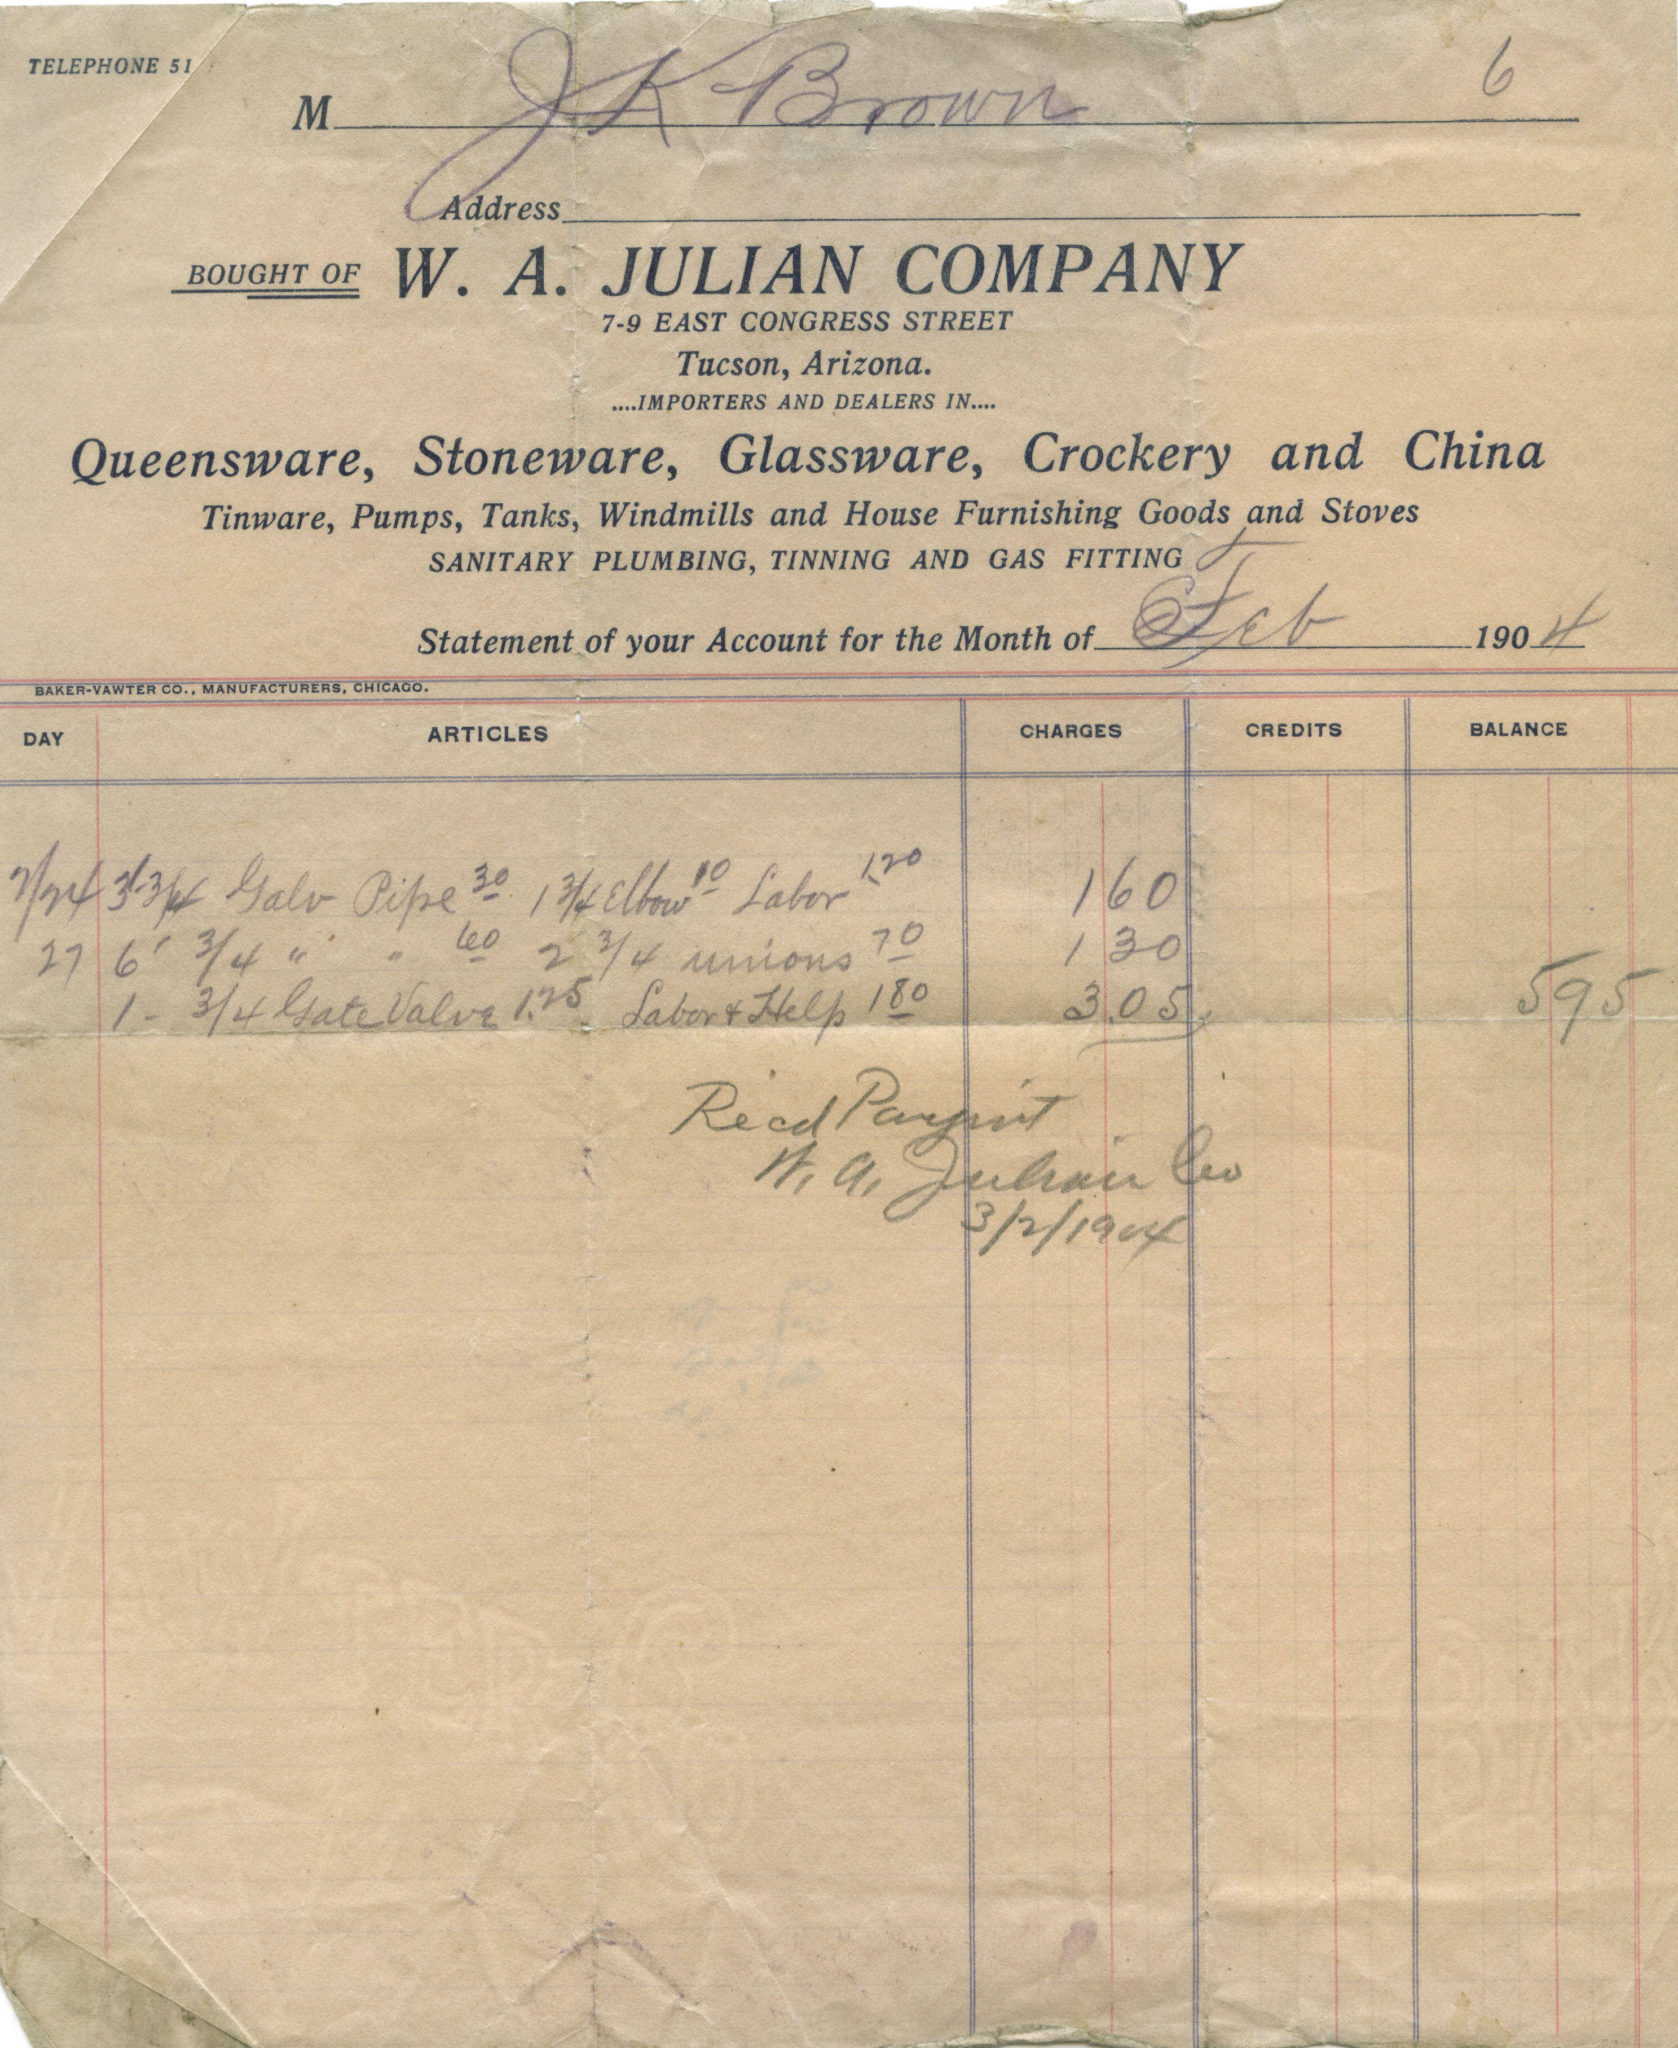 TELEPHONE 51
6
M J K Brown
Address
BOUGHT OF W. A. JULIAN COMPANY
7-9 EAST CONGRESS STREET
Tucson, Arizona.
....IMPORTERS AND DEALERS IN....
Queensware, Stoneware, Glassware, Crockery and China
Tinware, Pumps, Tanks, Windmills and House Furnishing Goods and Stoves
SANITARY PLUMBING, TINNING AND GAS FITTING
Statement of your Account for the Month of Feb 1904
BAKER-VAWTER CO., MANUFACTURERS, CHICAGO.
DAY ARTICLES CHARGES CREDITS BALANCE
2/24 3' 3/4 Galv Pipe 30 1 3/4 Elbow 10 Labor 1.20 1 60
27 6' 3/4 " " 60 2 3/4 unions 70 1 30
1 - 3/4 Gate Valve 1.25 Labor & Help 1 80 3.05 5 95
Recd Paymt
W. A. Julian Co
3/2/1904